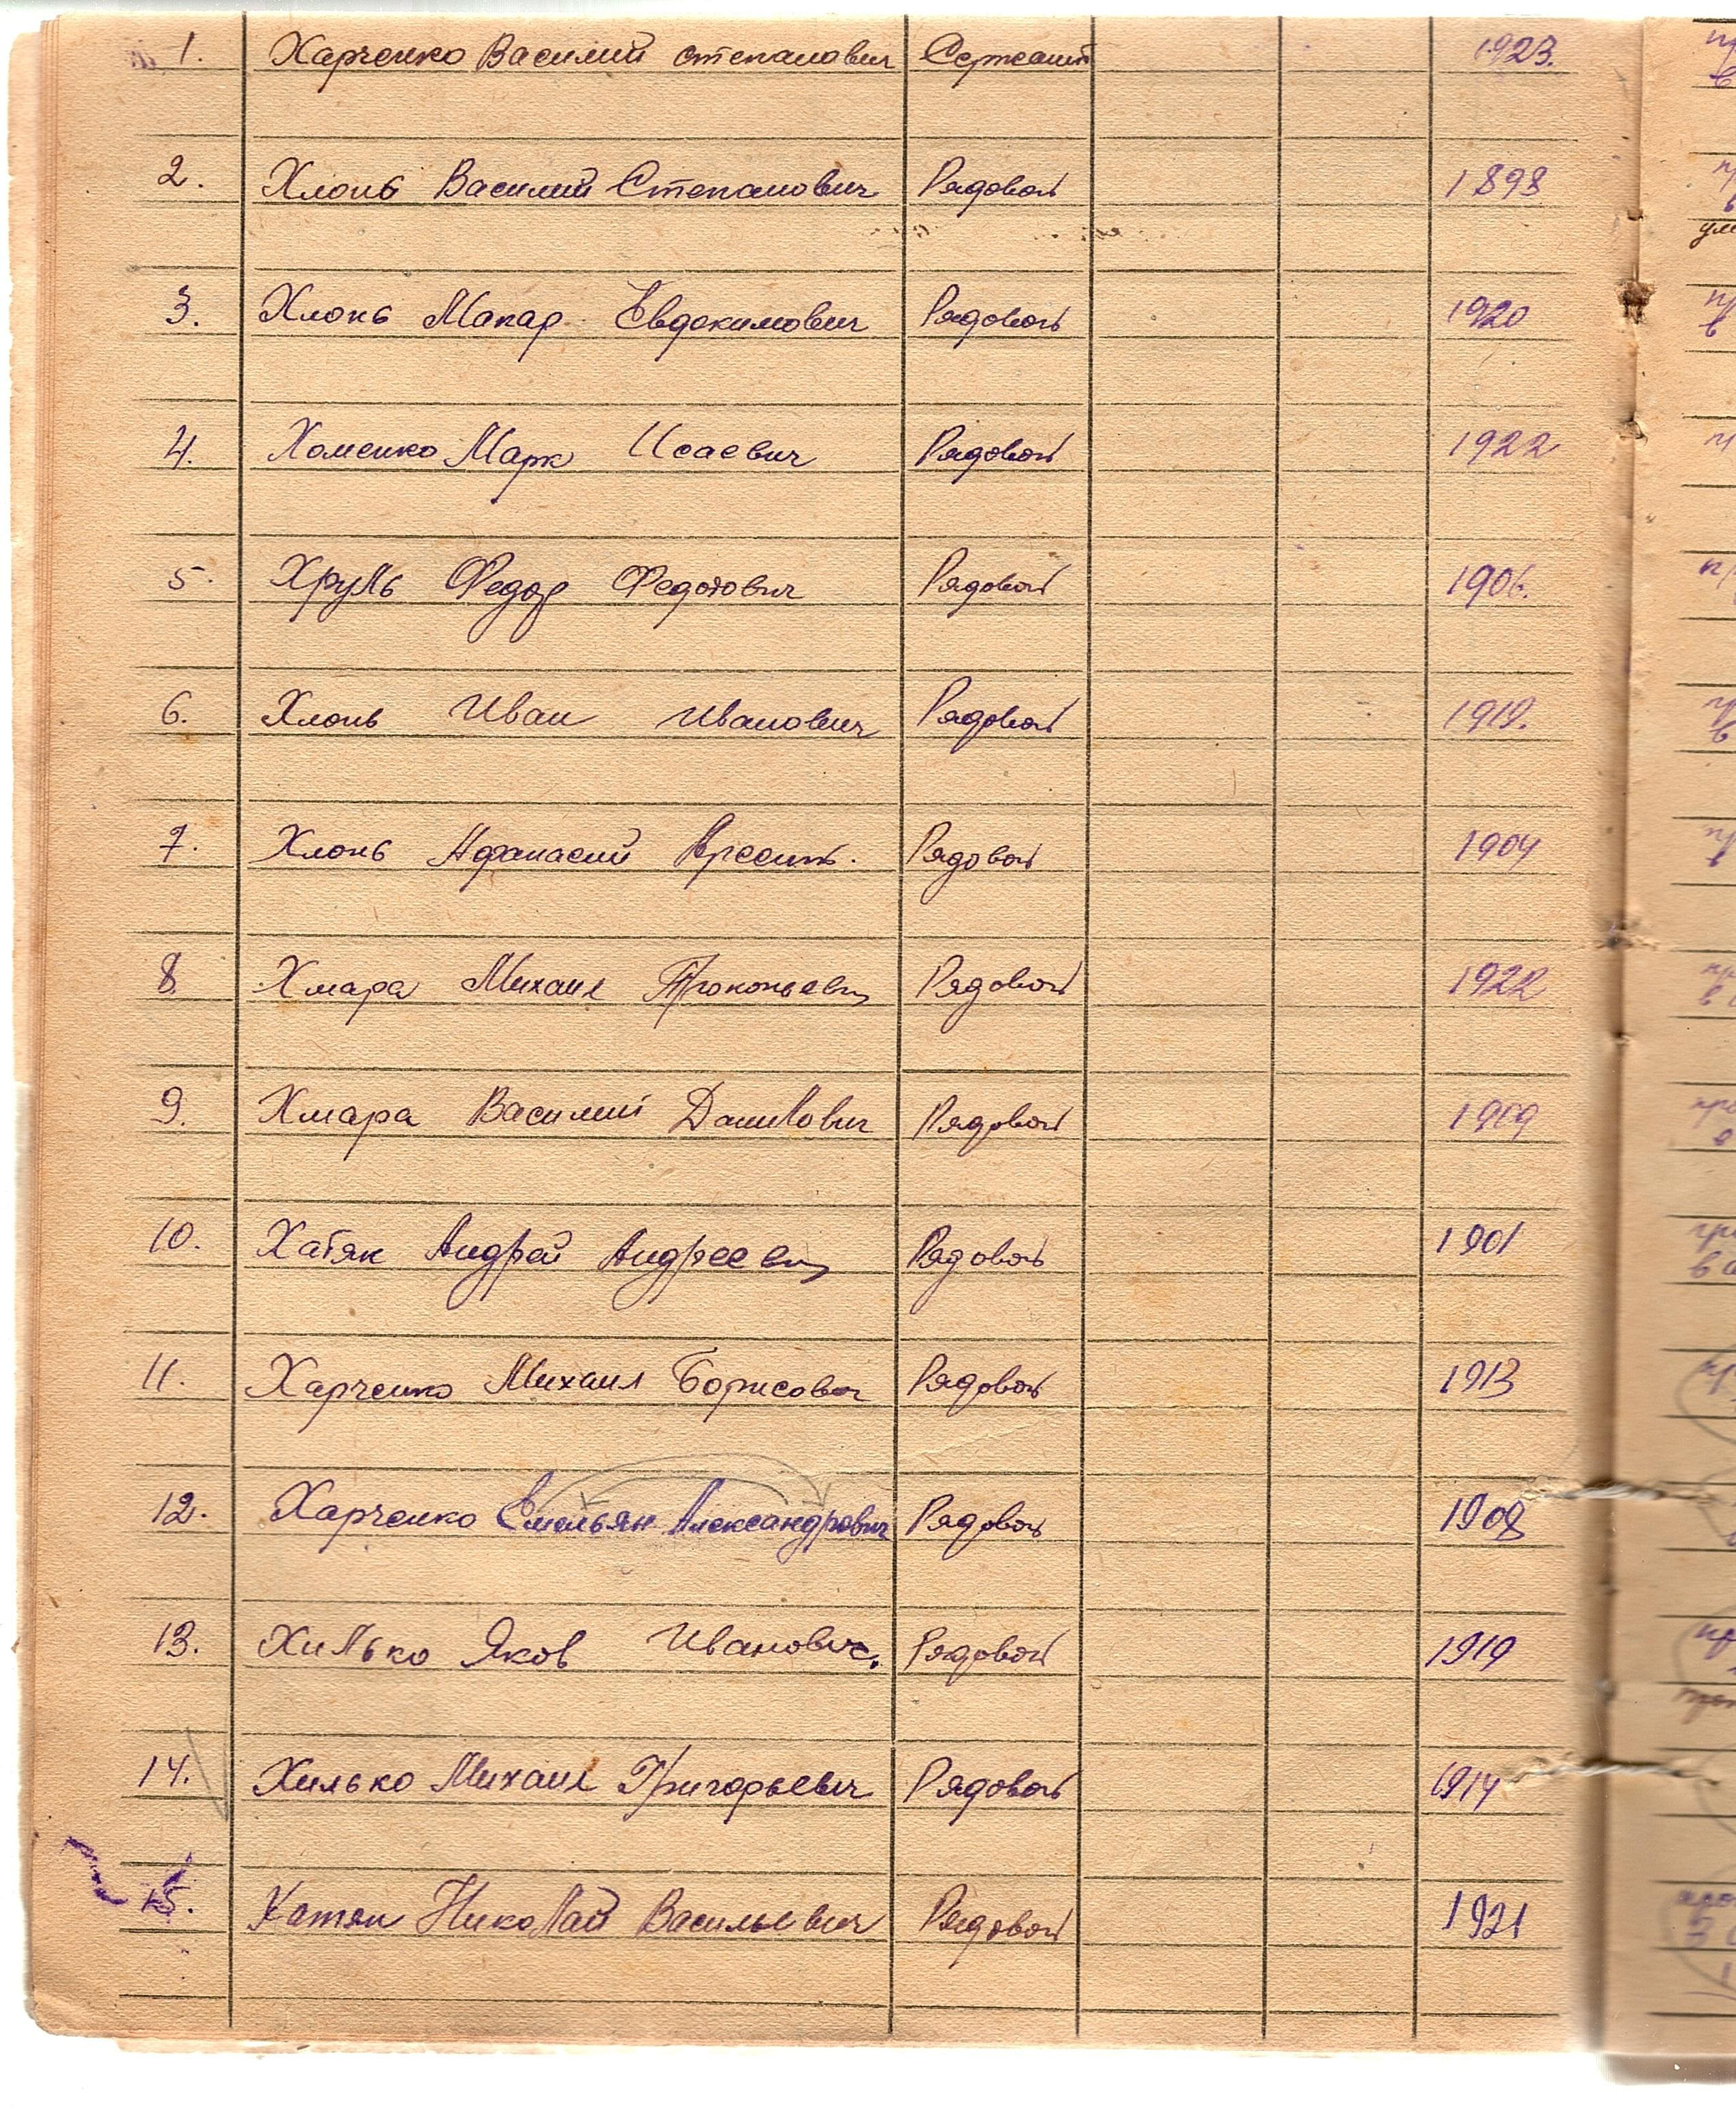 1. Харченко Василий Степанович Сержант 1923.
2. Хлонь Василий Степанович Рядовой 1898
3. Хлонь Макар Евдокимович Рядовой 1920
4. Хоменко Марк Исаевич Рядовой 1922
5. Хруль Федор Федотович Рядовой 1906.
6. Хлонь Иван Иванович Рядовой 1919.
7. Хлонь Афанасий Рядовой 1904
8. Хмара Михаил Прокопьевич Рядовой 1922
9. Хмара Василий Данилович Рядовой 1909
10. Хатяк Андрей Андреевич Рядовой 1901
11. Харченко Михаил Борисович Рядовой 1913
12. Харченко Емельян Александрович Рядовой 1908
13. Хилько Яков Иванович. Рядовой 1919
14. Хилько Михаил Григорьевич Рядовой 1914
15. Хатяк Николай Васильевич Рядовой 1921